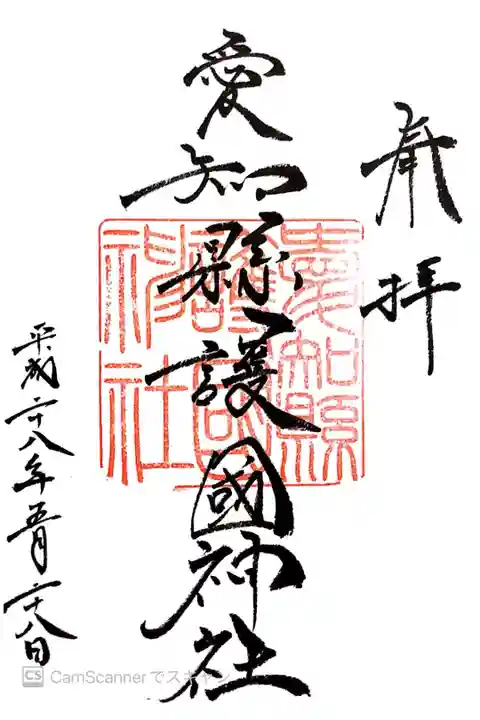 奉拝
愛知縣護國神社
愛知縣
護國
神社
平成二十八年五月二十八日
CS CamScannerでスキャン